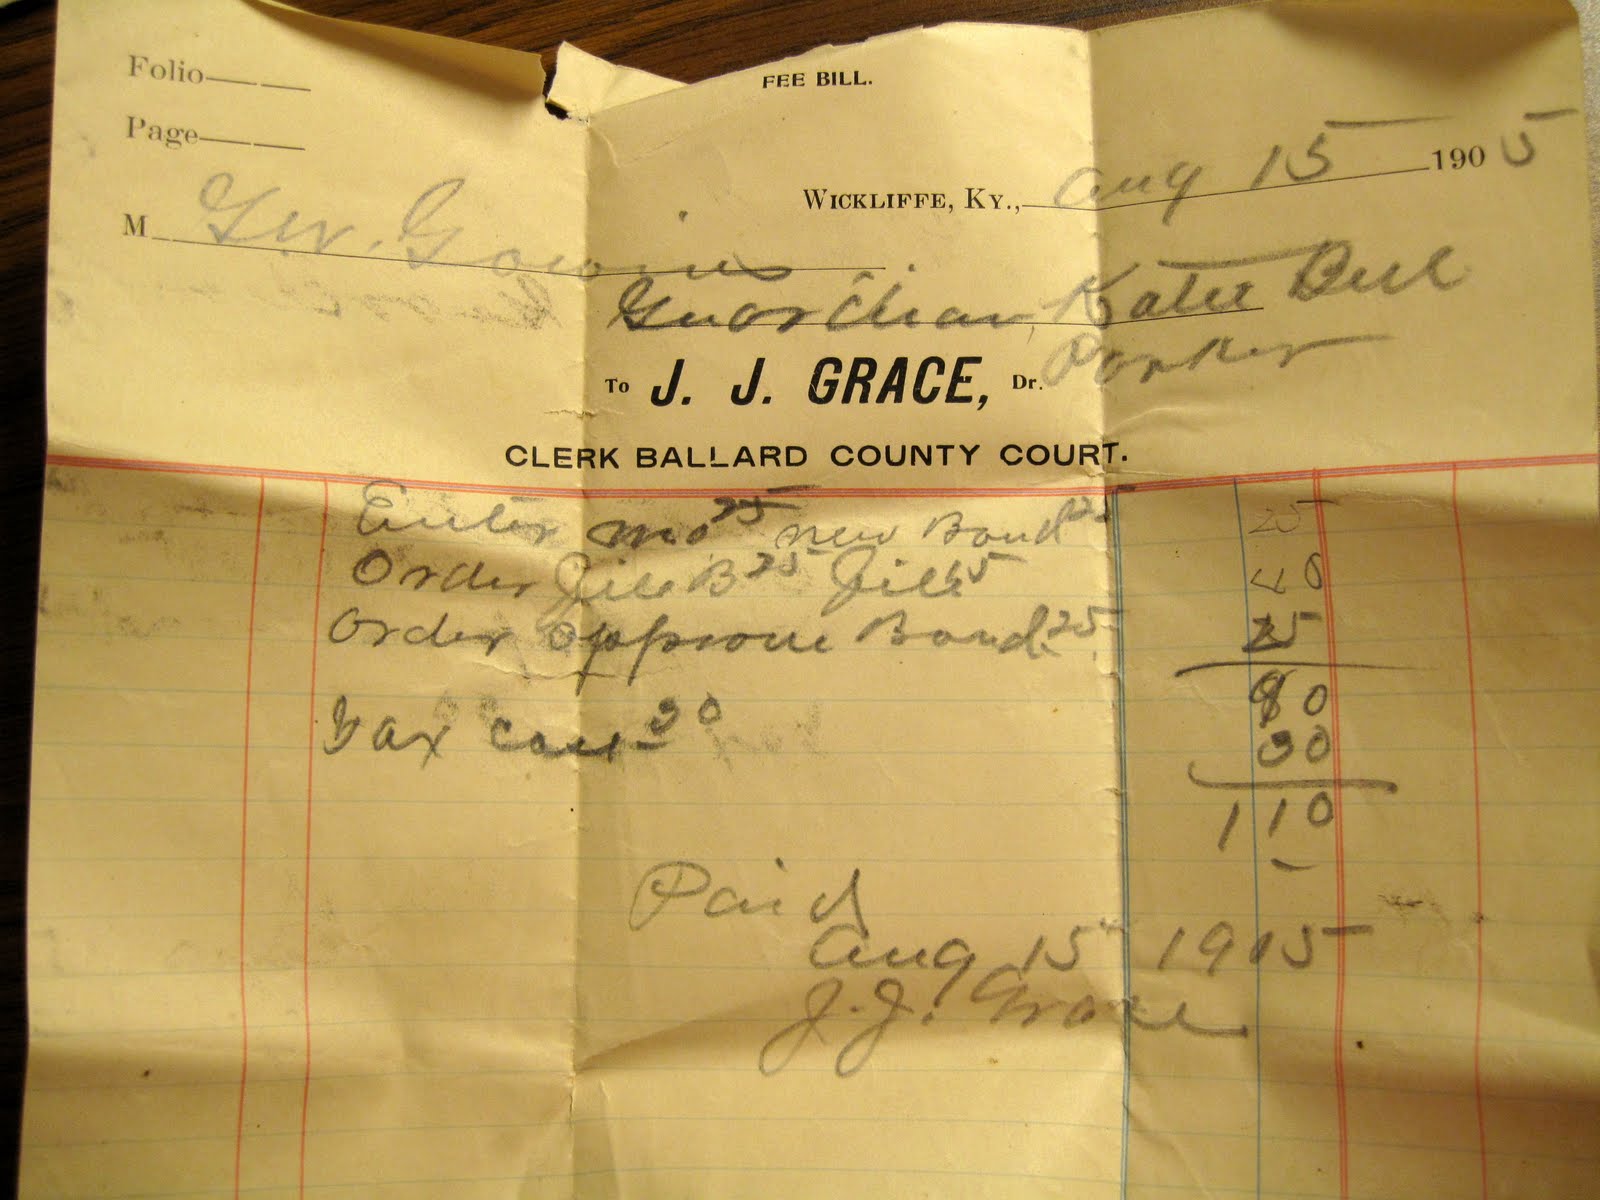 Folio
Page
FEE BILL.
WICKLIFFE, KY., Aug 15 1905
M Gowins
Guardian Katie Bell
Parker
To J. J. GRACE, Dr.
CLERK BALLARD COUNTY COURT.
Enter mo 25 new Bond 25 25
Order File B 25 File 15 40
Order approve Bond 25 25
90
Tax cost 20 30
110
Paid
Aug 15 1905
J. J. Grace